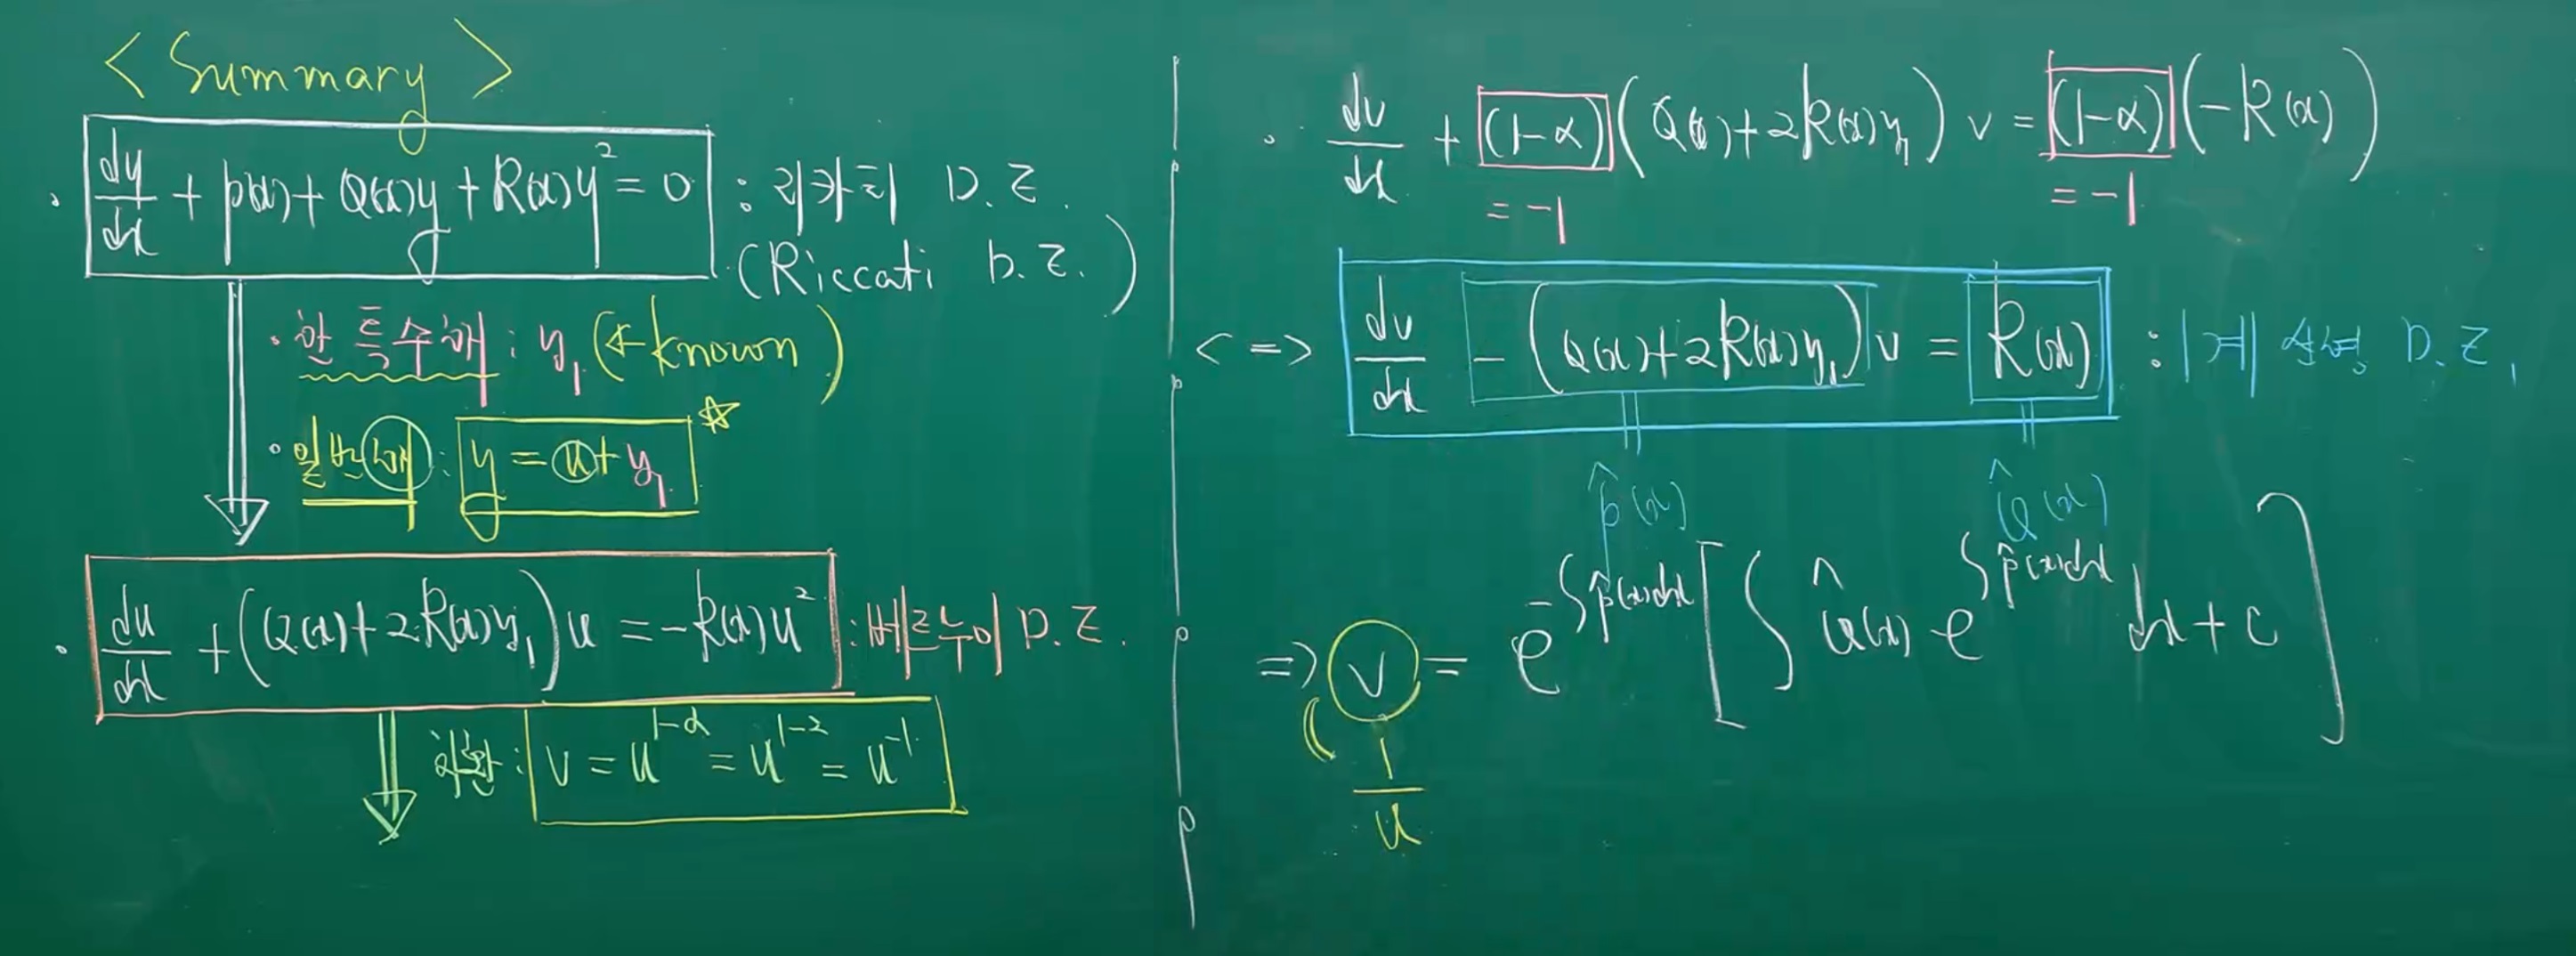 < Summary >
· dy/dx + p(x) + Q(x)y + R(x)y² = 0 : 리카티 D.E.
(Riccati D.E.)
· 한 특수해 : y₁ (← known)
· 일반해 : y = u + y₁ ☆
· du/dx + (Q(x) + 2R(x)y₁)u = -R(x)u² : 베르누이 D.E.
치환 : v = u^(1-α) = u^(1-2) = u^(-1)
· dv/dx + (1-α)(Q(x) + 2R(x)y₁) v = (1-α)(-R(x))
= -1 = -1
<=> dv/dx - (Q(x) + 2R(x)y₁)v = R(x) : 1계 선형 D.E.
p̂(x) Q̂(x)
=> v = e^(-∫p̂(x)dx) [ ∫ Q̂(x) e^(∫p̂(x)dx) dx + c ]
1/u